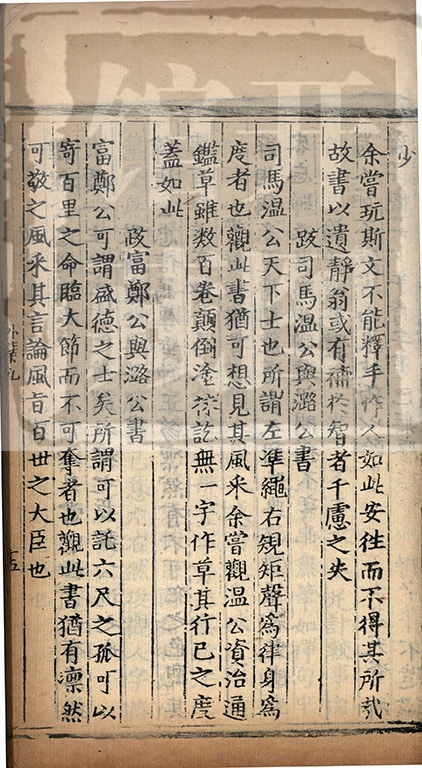 余嘗玩斯文不能釋手作人如此安往而不得其所哉
故書以遺靜翁或有補於智者千慮之失
跋司馬溫公與潞公書
司馬溫公天下士也所謂左凖繩右規矩聲為律身為
度者也觀此書猶可想見其風采余嘗觀溫公資治通
鑑草雖数百卷顛倒塗抹訖無一字作草其行已之度
蓋如此
跋富鄭公與潞公書
富鄭公可謂盛德之士矣所謂可以託六尺之孤可以
寄百里之命臨大節而不可奪者也觀此書猶有凛然
可敬之風采其言論風旨百世之大臣也